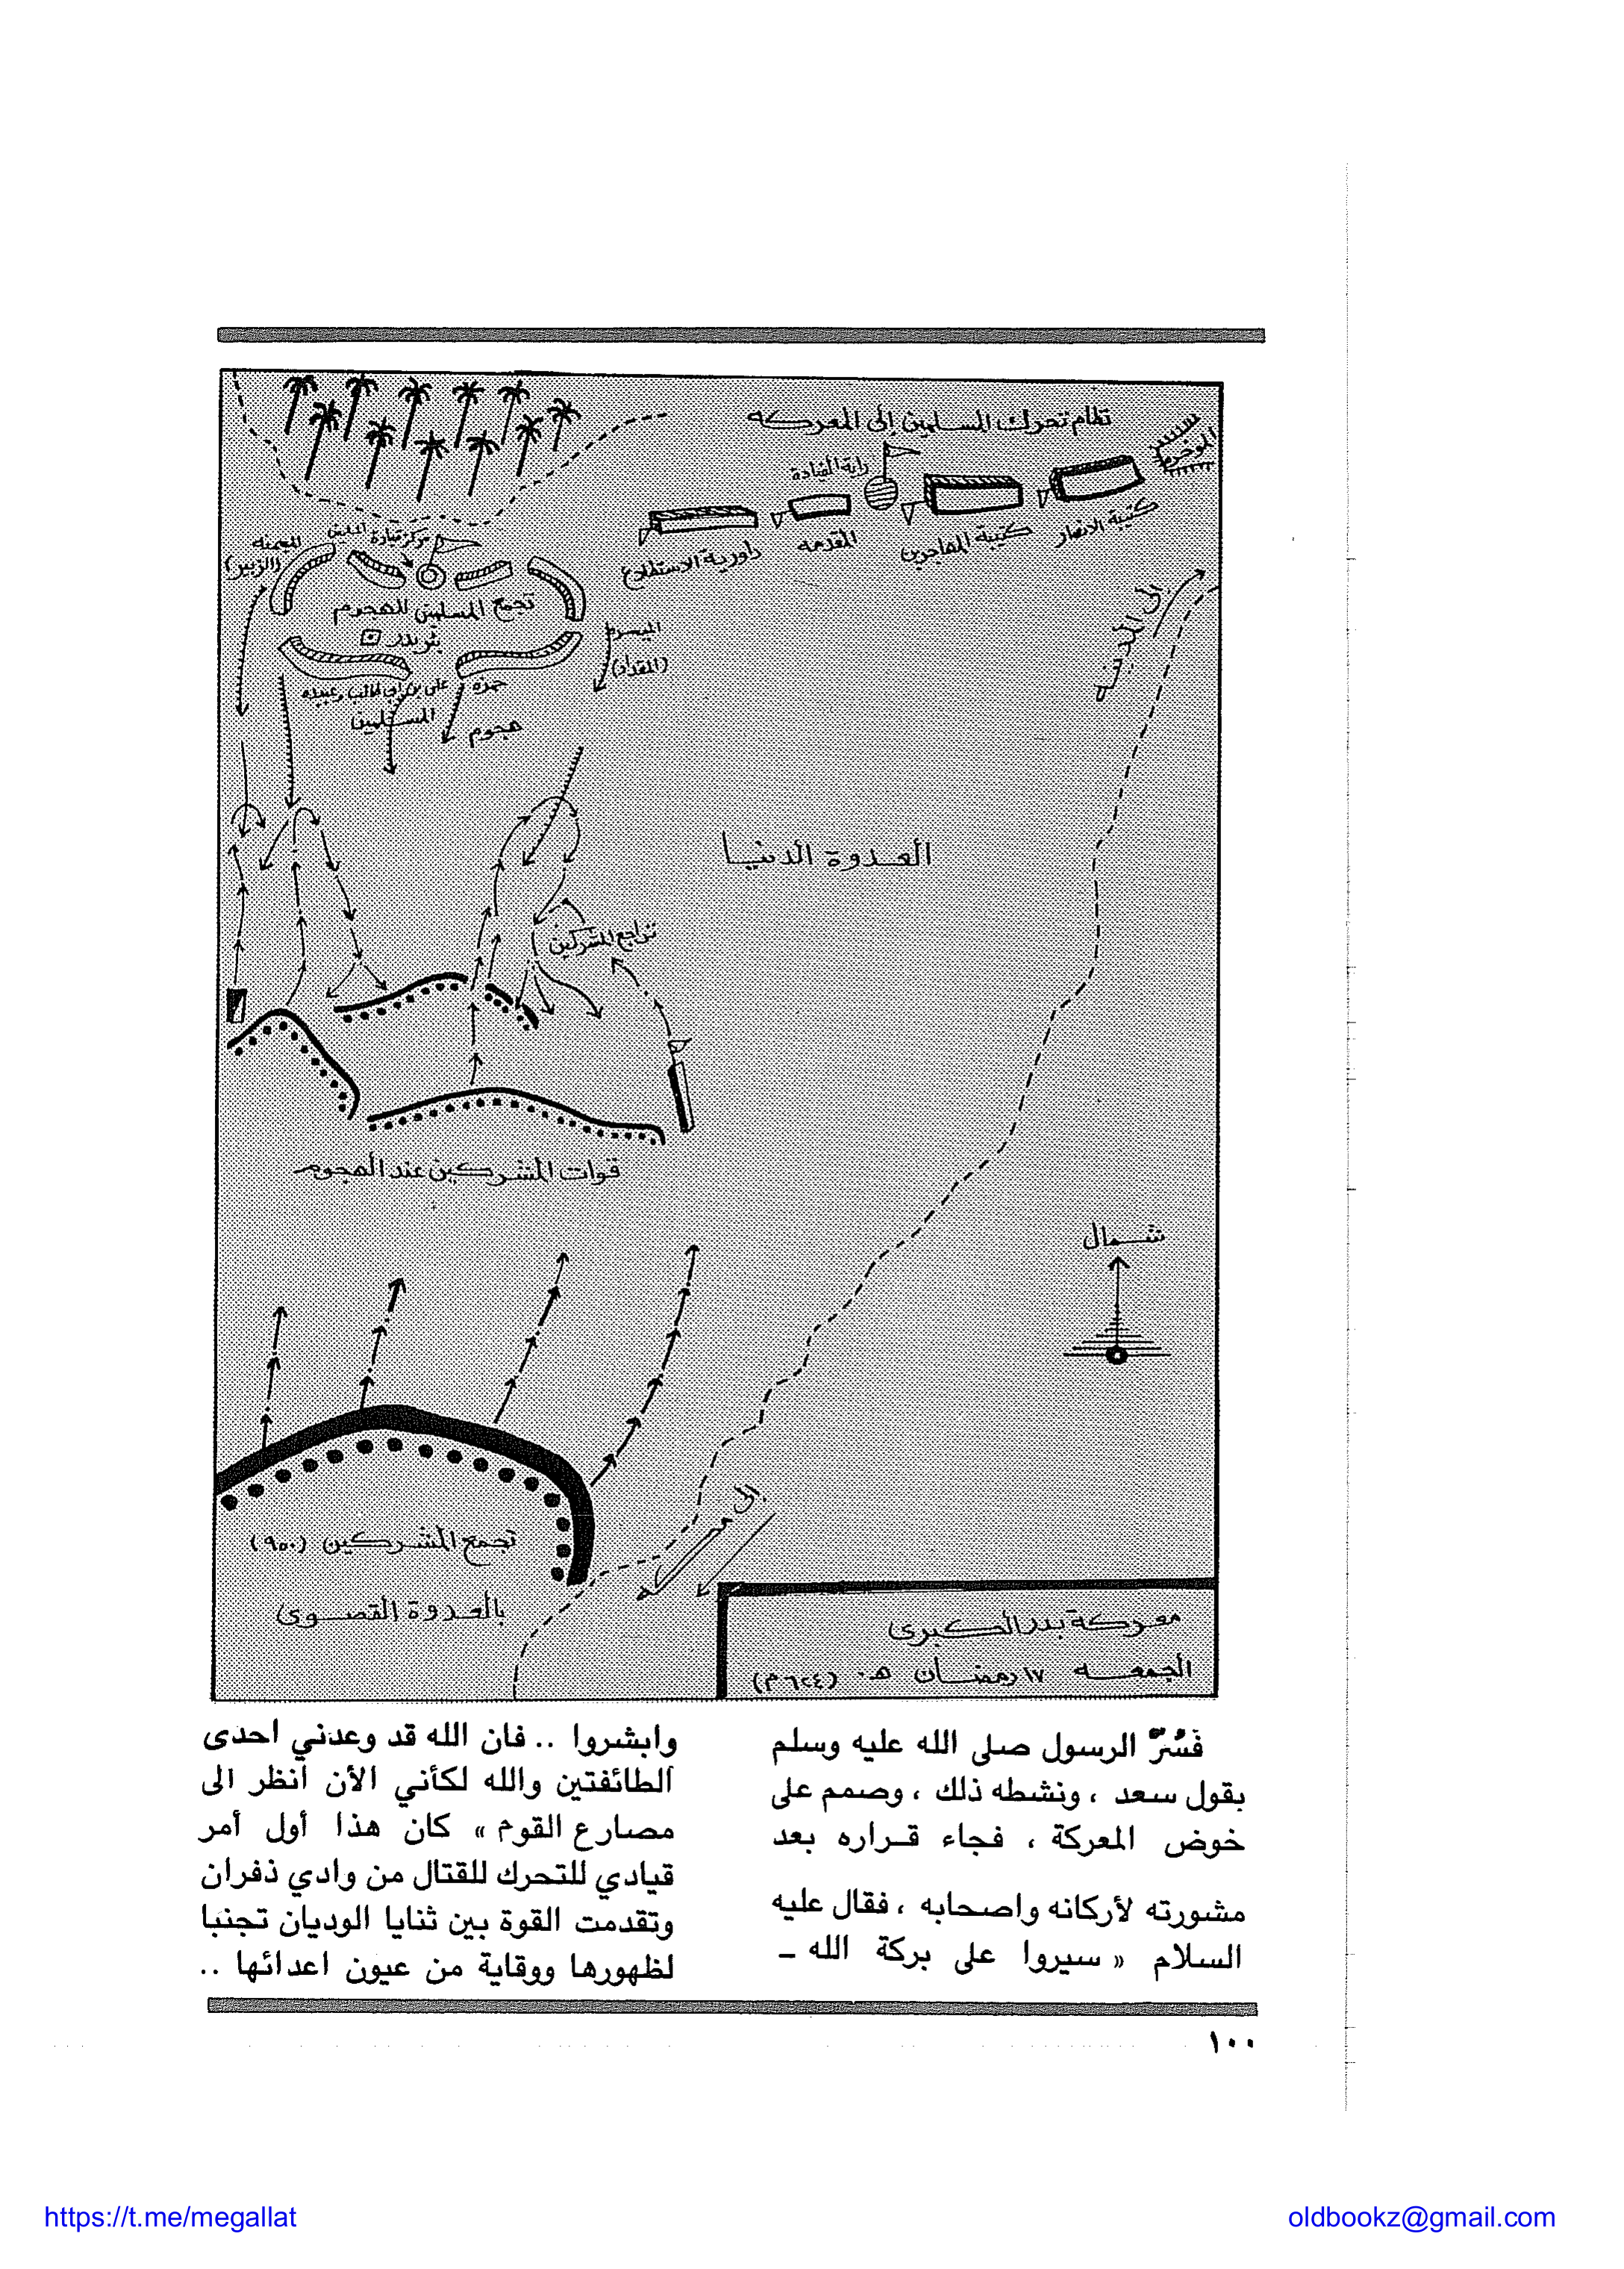 نظام تحرك المسلمين الى المعركه
المؤخره
كتيبة الانصار
كتيبة المهاجرين
راية القيادة
المقدمه
داورية الاستطلاع
الى المدينه
مركز قيادة المسلمين
الميمنه
(الزبير)
تجمع المسلمين للهجوم
بئر بدر
الميسره
(المقداد)
حمزه على بن ابى طالب وعبيده
هجوم المسلمين
العدوة الدنيا
تراجع المشركين
قوات المشركين عند الهجوم
شمال
الى
تجمع المشركين (٩٥٠)
بالعدوة القصوى
معركة بدر الكبرى
الجمعه ١٧ رمضان ٠هـ (٦٢٤م)
فَسُرَّ الرسول صلى الله عليه وسلم
بقول سعد ، ونشطه ذلك ، وصمم على
خوض المعركة ، فجاء قراره بعد
مشورته لأركانه واصحابه ، فقال عليه
السلام « سيروا على بركة الله ـ
وابشروا .. فان الله قد وعدني احدى
الطائفتين والله لكأني الأن أنظر الى
مصارع القوم » كان هذا أول أمر
قيادي للتحرك للقتال من وادي ذفران
وتقدمت القوة بين ثنايا الوديان تجنبا
لظهورها ووقاية من عيون اعدائها ..
١٠٠
https://t.me/megallat
oldbookz@gmail.com